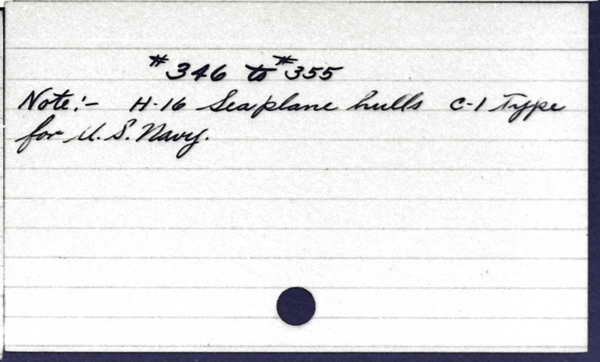 #346 to #355
Note:- H-16 Seaplane hulls C-1 Type
for U.S. Navy.